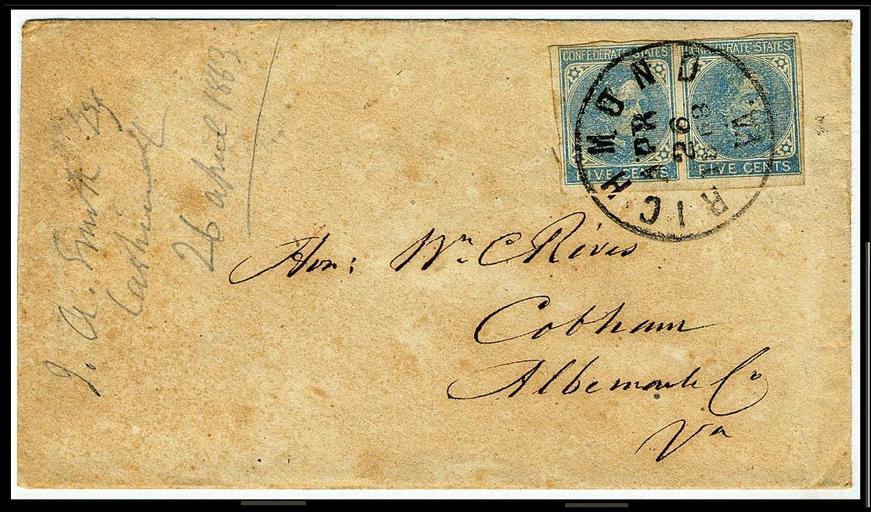 CONFEDERATE STATES
FIVE CENTS
CONFEDERATE STATES
FIVE CENTS
RICHMOND VA.
APR
26
1863
Hon: Wm C Rives
Cobham
Albemarle Co
Va
J. A. Smith Esq
26 april 1863